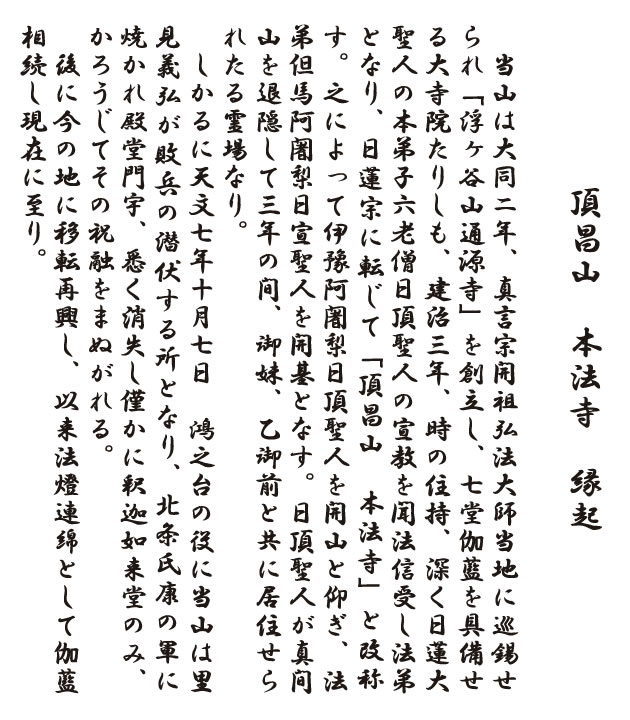 頂昌山 本法寺 縁起
当山は大同二年、真言宗開祖弘法大師当地に巡錫せ
られ「浮ヶ谷山通源寺」を創立し、七堂伽藍を具備せ
る大寺院たりしも、建治三年、時の住持、深く日蓮大
聖人の本弟子六老僧日頂聖人の宣教を聞法信受し法弟
となり、日蓮宗に転じて「頂昌山 本法寺」と改称
す。之によって伊豫阿闍梨日頂聖人を開山と仰ぎ、法
弟但馬阿闍梨日宣聖人を開基となす。日頂聖人が真間
山を退隠して三年の間、御妹、乙御前と共に居住せら
れたる霊場なり。
しかるに天文七年十月七日 鴻之台の役に当山は里
見義弘が敗兵の潜伏する所となり、北条氏康の軍に
焼かれ殿堂門宇、悉く消失し僅かに釈迦如来堂のみ、
かろうじてその祝融をまぬがれる。
後に今の地に移転再興し、以来法燈連綿として伽藍
相続し現在に至り。